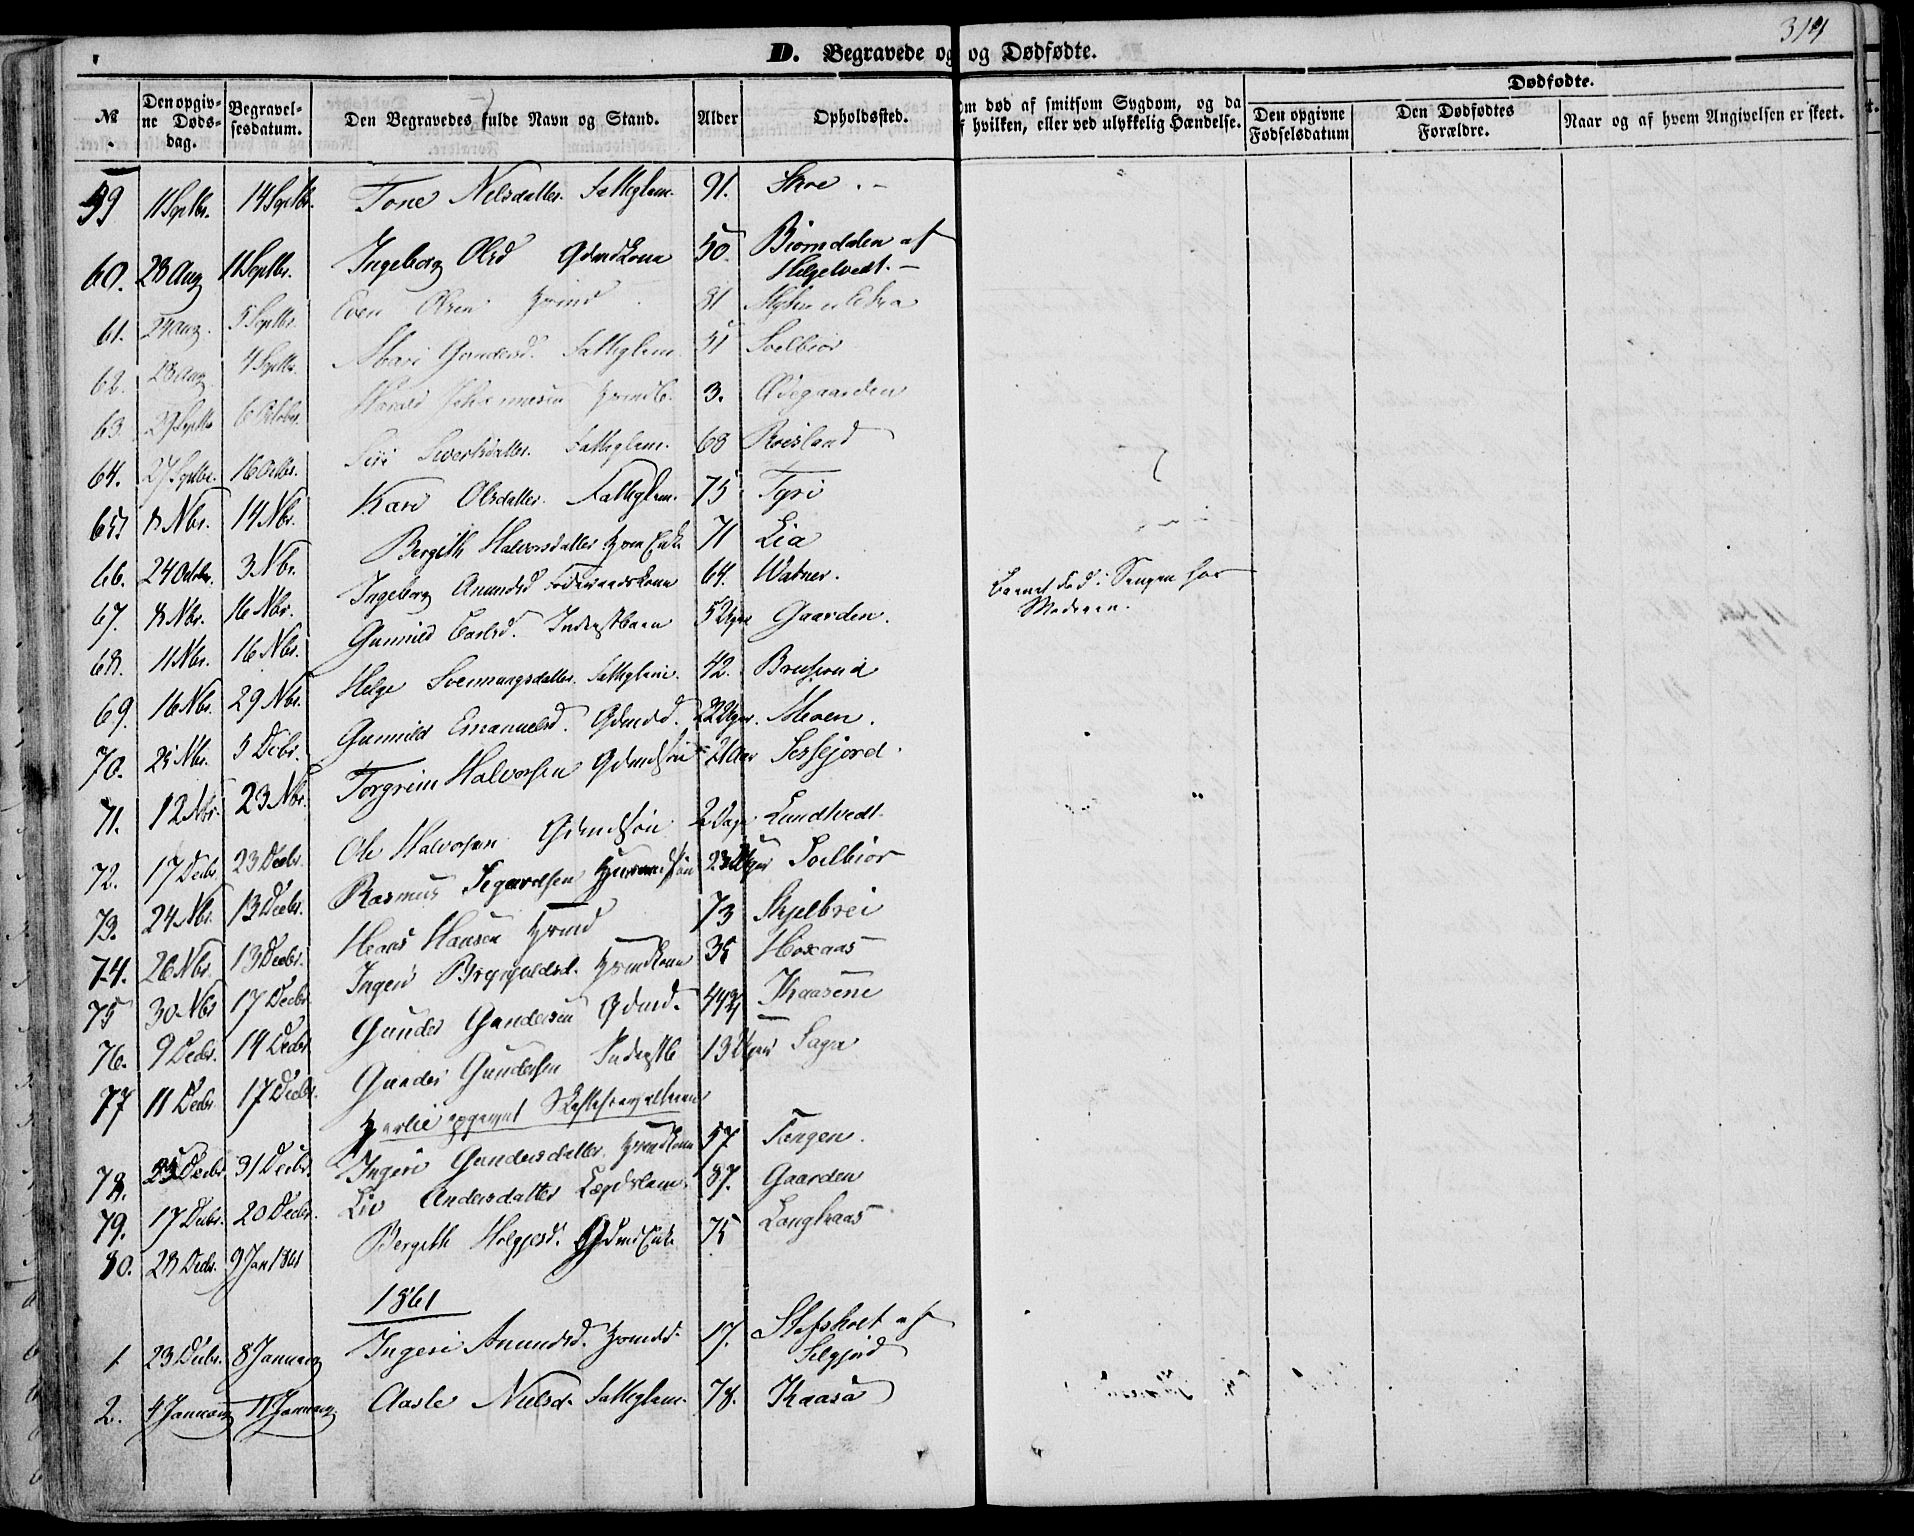 314
D. Begravede og og Dødfødte.
№ Den opgivne Døds-dag. Begravelsesdatum. Den Begravedes fulde Navn og Stand. Alder Opholdssted. Om død af smitsom Sygdom, og da af hvilken, eller ved ulykkelig Hændelse. Dødfødte. Den opgivne Fødselsdatum Den Dødfødtes Forældre. Naar og af hvem Angivelsen er skeet.
59 11 Septbr. 14 Septbr. Tone Nilsdatter. Fattiglem. 91. Skoe.
60. 28 Aug 11 Septbr. Ingeborg Olsd Gdmdkone 50. Biørndalen af
Helgetvedt.
61. 24 Aug. 5 Septbr. Even Olsen Hrmd 81
62. 28 Aug 4 Septbr. Mari Gundersd. Fattiglem. 51 Soelbiør
63. 29 Septbr 6 October. 3. Ødegaarden
64. 27 Septbr. 16 Octbr. Siri Sivertsdatter. Fattiglem. 68 Roisland
65. 8 Nbr. 14 Nbr. Kari Olsdatter. Fattiglem. 75 Tyri
66. 24 Octobr. 3 Nbr. Bergith Halvorsdatter Hrm Enke 71 Lia
67. 8 Nbr. 16 Nbr. Ingeborg Amundsd Føderaadskone 64. Watner.
68. 11 Nbr. 16 Nbr. Gunnild Carlsd. Inderstbarn 5 Uger Gaarden. Barnet død i Sengen hos
Moderen.
69. 16 Nbr. 29 Nbr. Helge Svennungsdatter. Fattiglem. 42.
70. 25 Nbr. 5 Dcbr. Gunnild Emanuelsd. Gdmdd. 22 Uger. Moen.
71. 12 Nbr. 23 Nbr. Torgrim Halvorsen Gdmdsøn 21 Aar Sessejord.
72. 17 Decbr. 23 Decbr. Ole Halvorsen Gdmdsøn 2 Dage Lundtvedt.
73. 24 Nbr. 13 Decbr. Rasmus Segurdsen Huusmandsøn 23 Uger Soelbiør
74. 26 Nbr. 13 Decbr. Hans Hansen Hrmd 73 Skjelbrei
75 30 Nbr 17 Decbr Ingeri Brynjuldsd. Hrmdkone 35 Hoxaas
76. 9 Decbr. 14 Decbr Gunder Gundersen Gdmd. 44 Kaasene
77 11 Decbr. 17 Decbr. Gunder Gundersen Inderstb 13 Uger Saga
78. 23 Decbr. 31 Decbr. Ingeri Gundersdatter. Hrmdkone 57 Tangen.
79. 17 Decbr. 20 Decbr. Liv Andersdatter Lægdslem. 87. Gaarden
80. 28 Decbr. 9 Jan 1861 Bergith Helgjesd. Gdmd Enke 75 Langkaas
1861
1. 23 Decbr. 8 January Ingeri Amundsd. Hrmdd. 17. Stofsholt af
Selgjord
2. 4 January 11 January. Aasle Nielsd. Fattiglem. 78. Kaasa